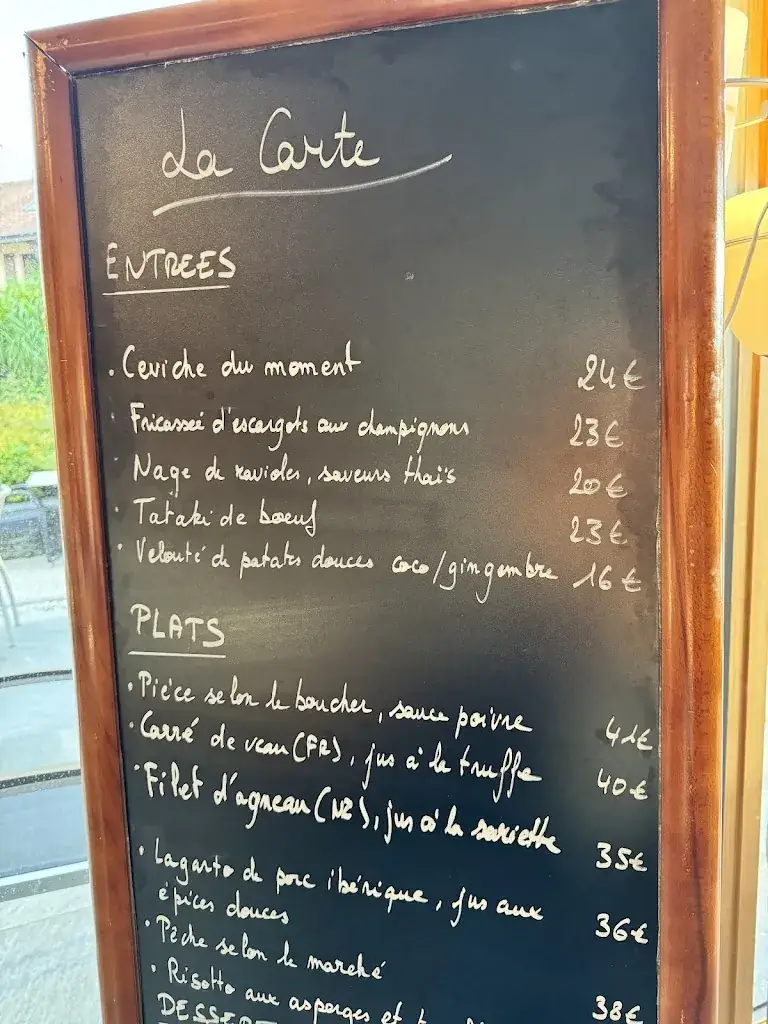 La Carte
ENTREES
. Ceviche du moment 24€
. Fricassée d'escargots aux champignons 23€
Nage de ravioles, saveurs thaïs 20€
. Tataki de boeuf 23€
. Velouté de patates douces coco/gingembre 16€
PLATS
. Pièce selon le boucher, sauce poivre 41€
. Carré de veau (FR), jus à la truffe 40€
. Filet d'agneau (NZ), jus à la sariette 35€
. Lagarto de porc ibérique, jus aux 36€
épices douces
. Pêche selon le marché 38€
. Risotto aux asperges et
DESSERT